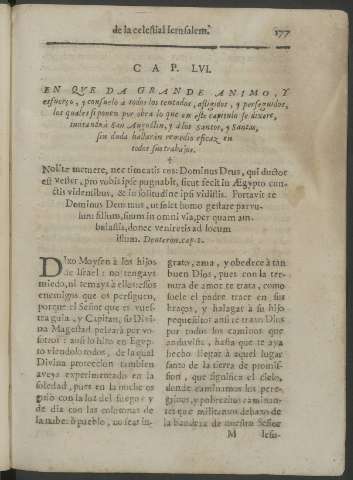 de la celestial Ierusalem. 177
CAP. LVI.
EN QUE DA GRANDE ANIMO, Y
esfuerço, y consuelo a todos los tentados, afligidos, y perseguidos,
los quales si ponen por obra lo que en este capitulo se dixere,
imitando a San Augustin, y a los Santos, y Santas,
sin duda hallaran remedio eficaz en
todos sus trabajos.
Nolite metuere, nec timeatis eos: Dominus Deus, qui ductor
est vester, pro vobis ipse pugnabit, sicut fecit in Ægypto cun-
ctis videntibus, & in solitudine ipsi vidistis. Portavit te
Dominus Deus tuus, ut solet homo gestare parvu-
lum filium suum in omni via, per quam am-
bulastis, donec veniretis ad locum
istum. Deuteron. cap. 1.
DIxo Moysen à los hijos
de Israel: no tengays
miedo, ni temays à essos essos
enemigos que os persiguen,
porque el Señor que es vues-
tra guia, y Capitan, su Divi-
na Magestad peleará por vo-
sotros: assi lo hizo en Egyp-
to viendolo todos, de la qual
Divina proteccion tambien
aveys experimentado en la
soledad, pues en la noche os
guió con la luz del fuego, y
de dia con las colomnas de
la nube: ò pueblo, no seas in-
grato, ama, y obedece à tan
buen Dios, pues con la ter-
nura de amor te trata, como
suele el padre traer en sus
braços, y halagar à su hijo
pequeñito: assi te traxo Dios
por todos los caminos que
anduviste, hasta que te aya
hecho llegar à aquel lugar
santo de la tierra de promis-
sion, que significa el cielo,
donde caminamos los pere-
grinos, y pobrezitos caminan-
tes que militamos debaxo de
la bandera de nuestro Señor
M Iesu-